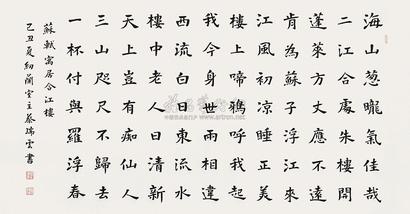 海山蔥曨氣佳哉
二江合處朱樓開
蓬萊方丈應不遠
肯為蘇子浮江來
江風初凉睡正美
樓上啼鴉呼我起
我今身世兩相違
西流白日東流水
樓中老人日清新
天上豈有痴仙人
三山咫尺不歸去
一杯付與羅浮春
蘇軾寓居合江樓
己丑夏紉蘭室主蔡瑞雲書